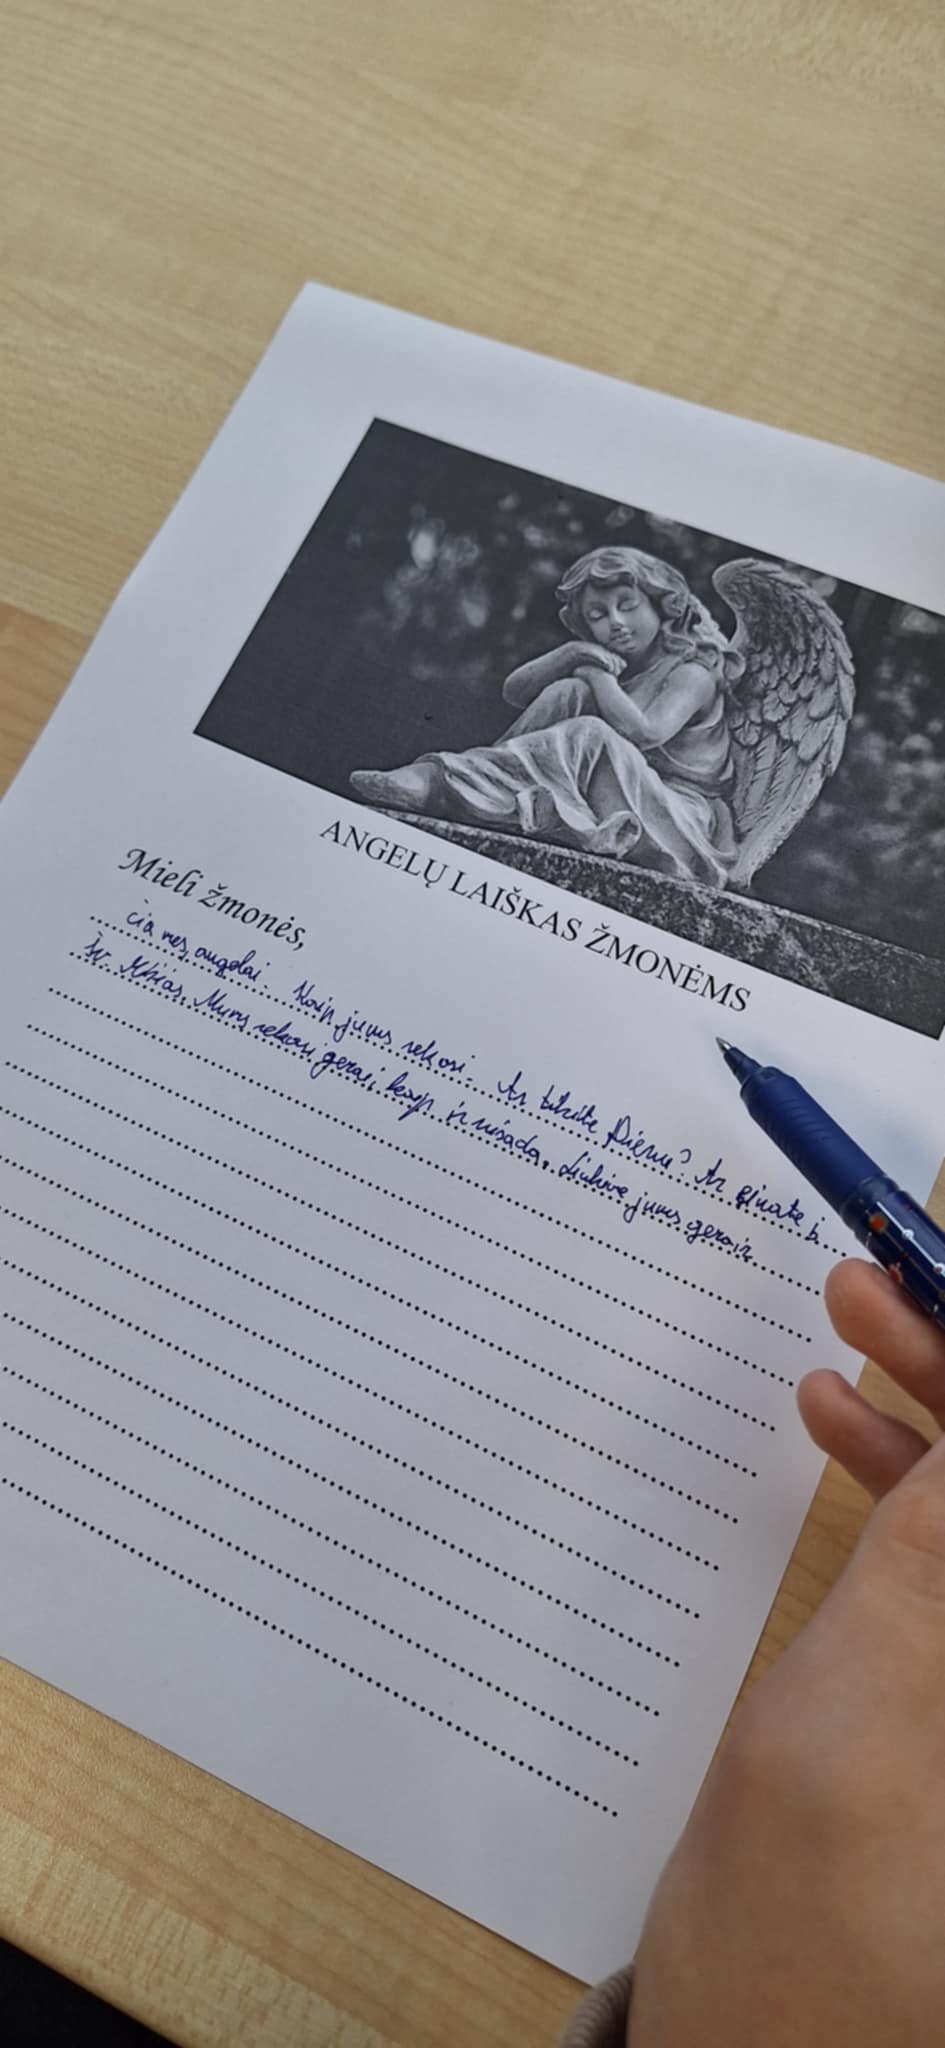 ANGELŲ LAIŠKAS ŽMONĖMS
Mieli žmonės,
čia mes, angelai. Kaip jums sekasi. Ar tikite Dievu? Ar einate į
šv. Mišias. Mums sekasi gerai, kaip ir visada. Linkime jums gerai